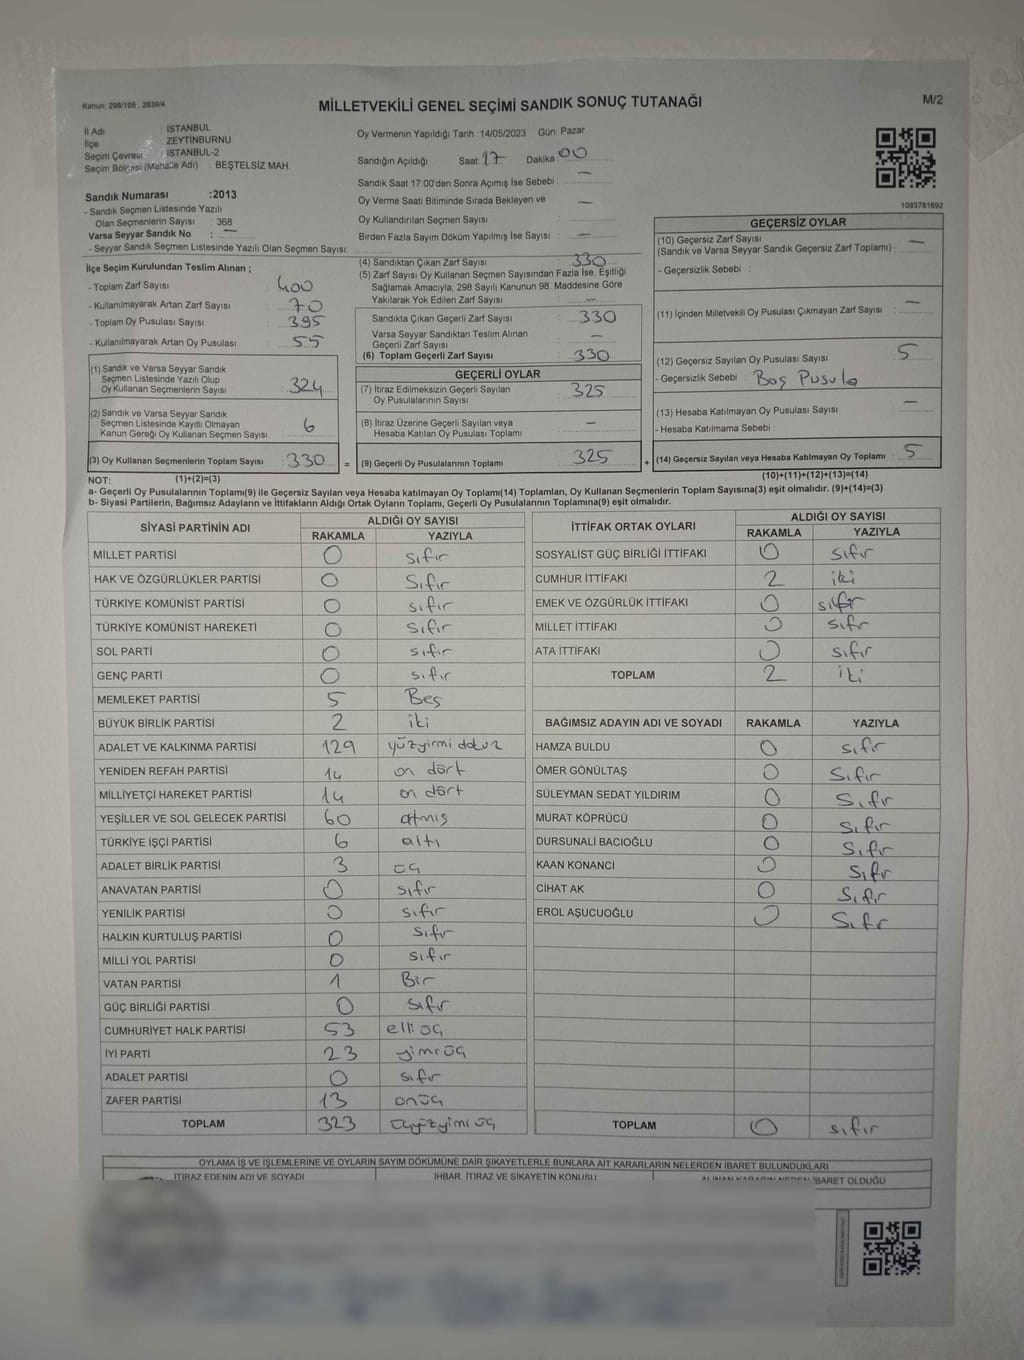 Kanun: 298/105 , 2839/4
MİLLETVEKİLİ GENEL SEÇİMİ SANDIK SONUÇ TUTANAĞI
M/2
İl Adı : İSTANBUL
İlçe : ZEYTİNBURNU
Seçim Çevresi : İSTANBUL-2
Seçim Bölgesi (Mahalle Adı) : BEŞTELSİZ MAH.
Sandık Numarası :2013
- Sandık Seçmen Listesinde Yazılı
Olan Seçmenlerin Sayısı : 368
Varsa Seyyar Sandık No : —
- Seyyar Sandık Seçmen Listesinde Yazılı Olan Seçmen Sayısı:
Oy Vermenin Yapıldığı Tarih :14/05/2023 Gün: Pazar
Sandığın Açıldığı Saat: 17 Dakika: 00
Sandık Saat 17:00'den Sonra Açımış İse Sebebi : —
Oy Verme Saati Bitiminde Sırada Bekleyen ve —
Oy Kullandırılan Seçmen Sayısı :
Birden Fazla Sayım Döküm Yapılmış İse Sayısı : —
1083781692
İlçe Seçim Kurulundan Teslim Alınan ;
- Toplam Zarf Sayısı : 400
- Kullanılmayarak Artan Zarf Sayısı : 70
- Toplam Oy Pusulası Sayısı : 395
- Kullanılmayarak Artan Oy Pusulası : 55
(1) Sandık ve Varsa Seyyar Sandık
Seçmen Listesinde Yazılı Olup
Oy Kullanan Seçmenlerin Sayısı : 324
(2) Sandık ve Varsa Seyyar Sandık
Seçmen Listesinde Kayıtlı Olmayan
Kanun Gereği Oy Kullanan Seçmen Sayısı : 6
(3) Oy Kullanan Seçmenlerin Toplam Sayısı : 330 =
(4) Sandıktan Çıkan Zarf Sayısı : 330
(5) Zarf Sayısı Oy Kullanan Seçmen Sayısından Fazla İse, Eşitliği
Sağlamak Amacıyla, 298 Sayılı Kanunun 98. Maddesine Göre
Yakılarak Yok Edilen Zarf Sayısı : —
Sandıkta Çıkan Geçerli Zarf Sayısı : 330
Varsa Seyyar Sandıktan Teslim Alınan —
Geçerli Zarf Sayısı :
(6) Toplam Geçerli Zarf Sayısı : 330
GEÇERLİ OYLAR
(7) İtiraz Edilmeksizin Geçerli Sayılan 325
Oy Pusulalarının Sayısı :
(8) İtiraz Üzerine Geçerli Sayılan veya —
Hesaba Katılan Oy Pusulası Toplamı :
(9) Geçerli Oy Pusulalarının Toplamı : 325 +
GEÇERSİZ OYLAR
(10) Geçersiz Zarf Sayısı —
(Sandık ve Varsa Seyyar Sandık Geçersiz Zarf Toplamı) :
- Geçersizlik Sebebi :
(11) İçinden Milletvekili Oy Pusulası Çıkmayan Zarf Sayısı : —
(12) Geçersiz Sayılan Oy Pusulası Sayısı : 5
- Geçersizlik Sebebi : Boş Pusula
(13) Hesaba Katılmayan Oy Pusulası Sayısı : —
- Hesaba Katılmama Sebebi :
(14) Geçersiz Sayılan veya Hesaba Katılmayan Oy Toplamı : 5
NOT: (1)+(2)=(3) (10)+(11)+(12)+(13)=(14)
a- Geçerli Oy Pusulalarının Toplamı(9) ile Geçersiz Sayılan veya Hesaba katılmayan Oy Toplamı(14) Toplamları, Oy Kullanan Seçmenlerin Toplam Sayısına(3) eşit olmalıdır. (9)+(14)=(3)
b- Siyasi Partilerin, Bağımsız Adayların ve İttifakların Aldığı Ortak Oyların Toplamı, Geçerli Oy Pusulalarının Toplamına(9) eşit olmalıdır.
SİYASİ PARTİNİN ADI ALDIĞI OY SAYISI
RAKAMLA YAZIYLA
MİLLET PARTİSİ 0 sıfır
HAK VE ÖZGÜRLÜKLER PARTİSİ 0 Sıfır
TÜRKİYE KOMÜNİST PARTİSİ 0 sıfır
TÜRKİYE KOMÜNİST HAREKETİ 0 Sıfır
SOL PARTİ 0 sıfır
GENÇ PARTİ 0 sıfır
MEMLEKET PARTİSİ 5 Beş
BÜYÜK BİRLİK PARTİSİ 2 iki
ADALET VE KALKINMA PARTİSİ 129 yüzyirmi dokuz
YENİDEN REFAH PARTİSİ 14 on dört
MİLLİYETÇİ HAREKET PARTİSİ 14 on dört
YEŞİLLER VE SOL GELECEK PARTİSİ 60 atmış
TÜRKİYE İŞÇİ PARTİSİ 6 altı
ADALET BİRLİK PARTİSİ 3 üç
ANAVATAN PARTİSİ 0 sıfır
YENİLİK PARTİSİ 0 sıfır
HALKIN KURTULUŞ PARTİSİ 0 sıfır
MİLLİ YOL PARTİSİ 0 sıfır
VATAN PARTİSİ 1 Bir
GÜÇ BİRLİĞİ PARTİSİ 0 sıfır
CUMHURİYET HALK PARTİSİ 53 elli üç
İYİ PARTİ 23 yimrüç
ADALET PARTİSİ 0 sıfır
ZAFER PARTİSİ 13 onüç
TOPLAM 323 üçyüzyimi üç
İTTİFAK ORTAK OYLARI ALDIĞI OY SAYISI
RAKAMLA YAZIYLA
SOSYALİST GÜÇ BİRLİĞİ İTTİFAKI 0 sıfır
CUMHUR İTTİFAKI 2 iki
EMEK VE ÖZGÜRLÜK İTTİFAKI 0 sıfır
MİLLET İTTİFAKI 0 sıfır
ATA İTTİFAKI 0 sıfır
TOPLAM 2 iki
BAĞIMSIZ ADAYIN ADI VE SOYADI RAKAMLA YAZIYLA
HAMZA BULDU 0 sıfır
ÖMER GÖNÜLTAŞ 0 Sıfır
SÜLEYMAN SEDAT YILDIRIM 0 Sıfır
MURAT KÖPRÜCÜ 0 Sıfır
DURSUNALİ BACIOĞLU 0 Sıfır
KAAN KONANCİ 0 Sıfır
CİHAT AK 0 Sıfır
EROL AŞUCUOĞLU 0 Sıfır
TOPLAM 0 sıfır
OYLAMA İŞ VE İŞLEMLERİNE VE OYLARIN SAYIM DÖKÜMÜNE DAİR ŞİKAYETLERLE BUNLARA AİT KARARLARIN NELERDEN İBARET BULUNDUKLARI
İTİRAZ EDENİN ADI VE SOYADI İHBAR, İTİRAZ VE ŞİKAYETİN KONUSU ALINAN KARARIN NEDEN İBARET OLDUĞU